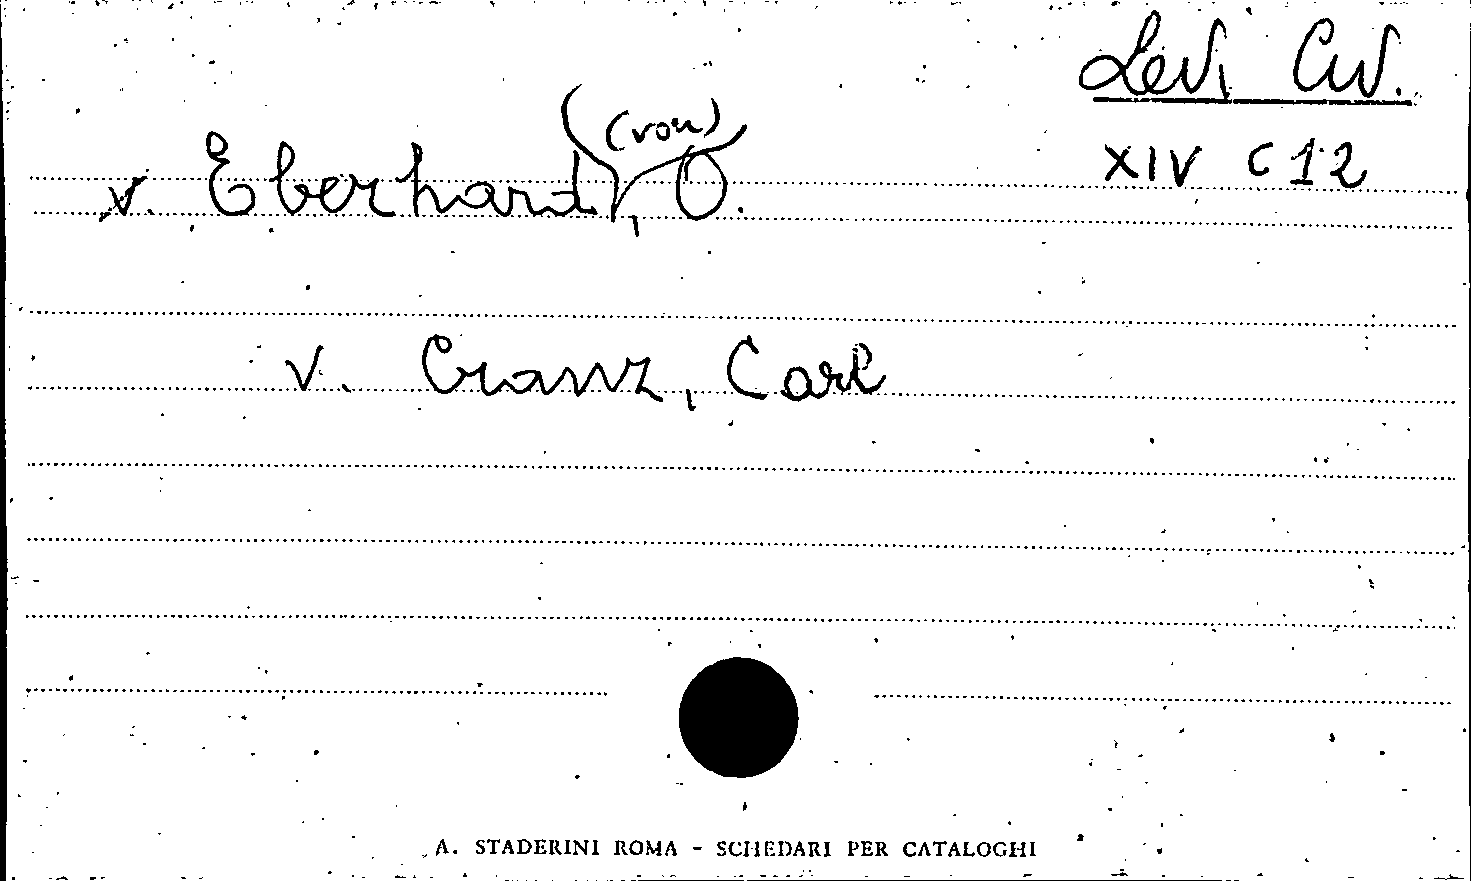 Levi Civ.
XIV C 12
v. Eberhard (von), O.
v. Cranz, Carl
A. STADERINI ROMA - SCHEDARI PER CATALOGHI